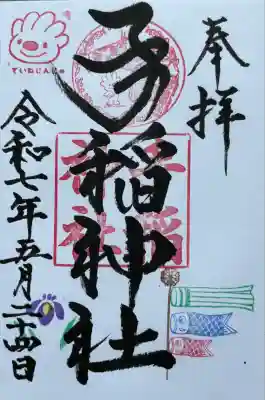 奉拝
手稲神社
令和七年五月二十四日
ていねじんじゃ